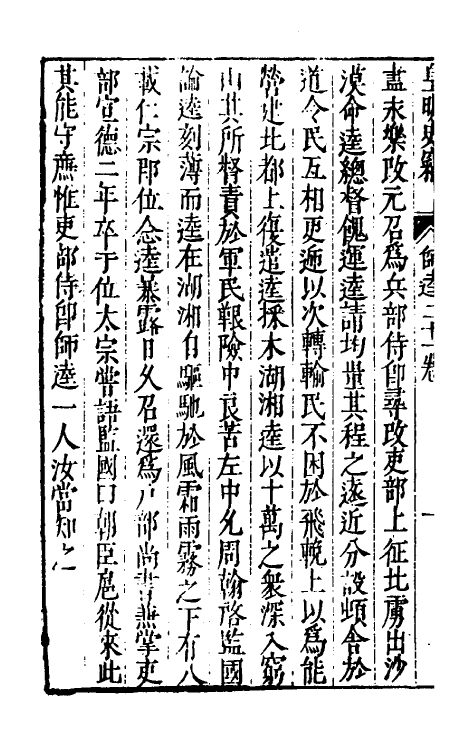 皇明史竊 師逵 二十一卷 一
盡永樂改元召爲兵部侍郎尋改吏部上征北虜出沙
漠命逵總督餽運逵請均量其程之遠近分設頓舍於
道令民互相更遞以次轉輸民不困於飛輓上以爲能
營建北都上復遣逵採木湖湘逵以十萬之衆深入窮
山其所督責於軍民艱險中良苦左中允周翰啓監國
論逵刻薄而逵在湖湘自驅馳於風霜雨霧之下有八
載仁宗卽位念逵暴露日久召還爲戶部尚書兼掌吏
部宣德二年卒于位太宗嘗語監國曰朝臣扈從來此
其能守廉惟吏部侍郎師逵一人汝當知之